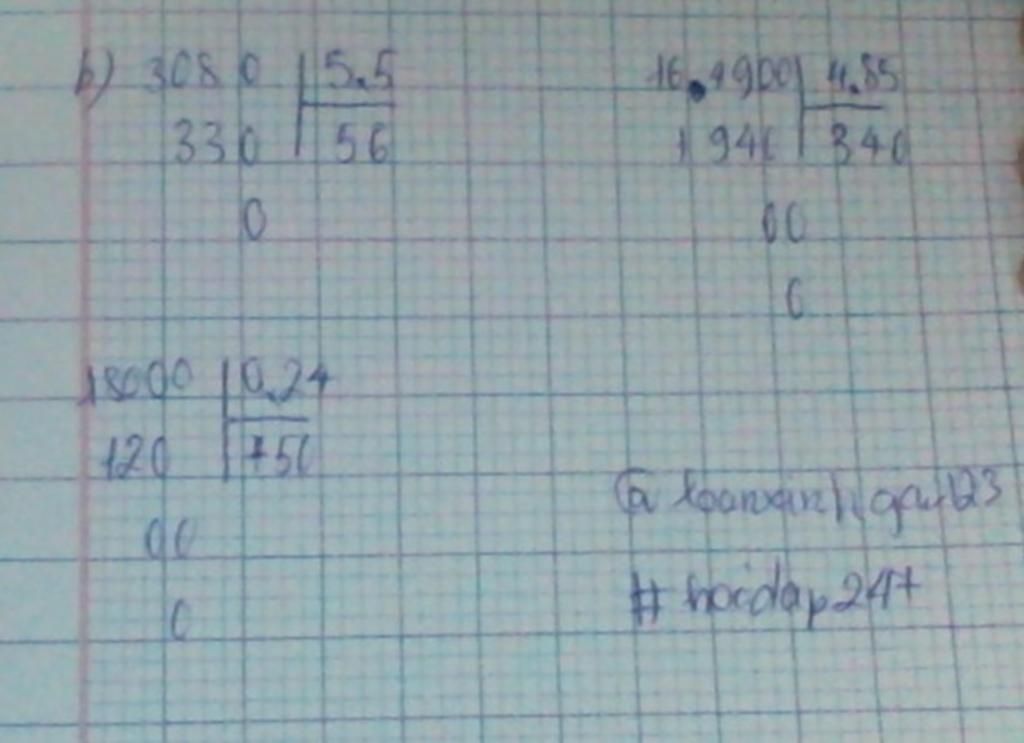 b) 3080 5,5
330 56
0
16,4900 4,85
1940 340
00
0
18000 0,24
120 750
00
0
# hoidap247